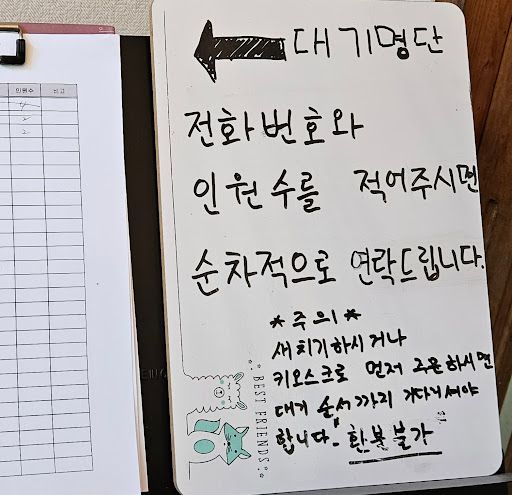 인원수 비고
4
2
2
← 대기명단
전화번호와
인원수를 적어주시면
순차적으로 연락드립니다.
*주의*
새치기하시거나
키오스크로 먼저 주문하시면
대기 순서까지 기다리셔야
합니다! 환불불가
BEST FRIENDS